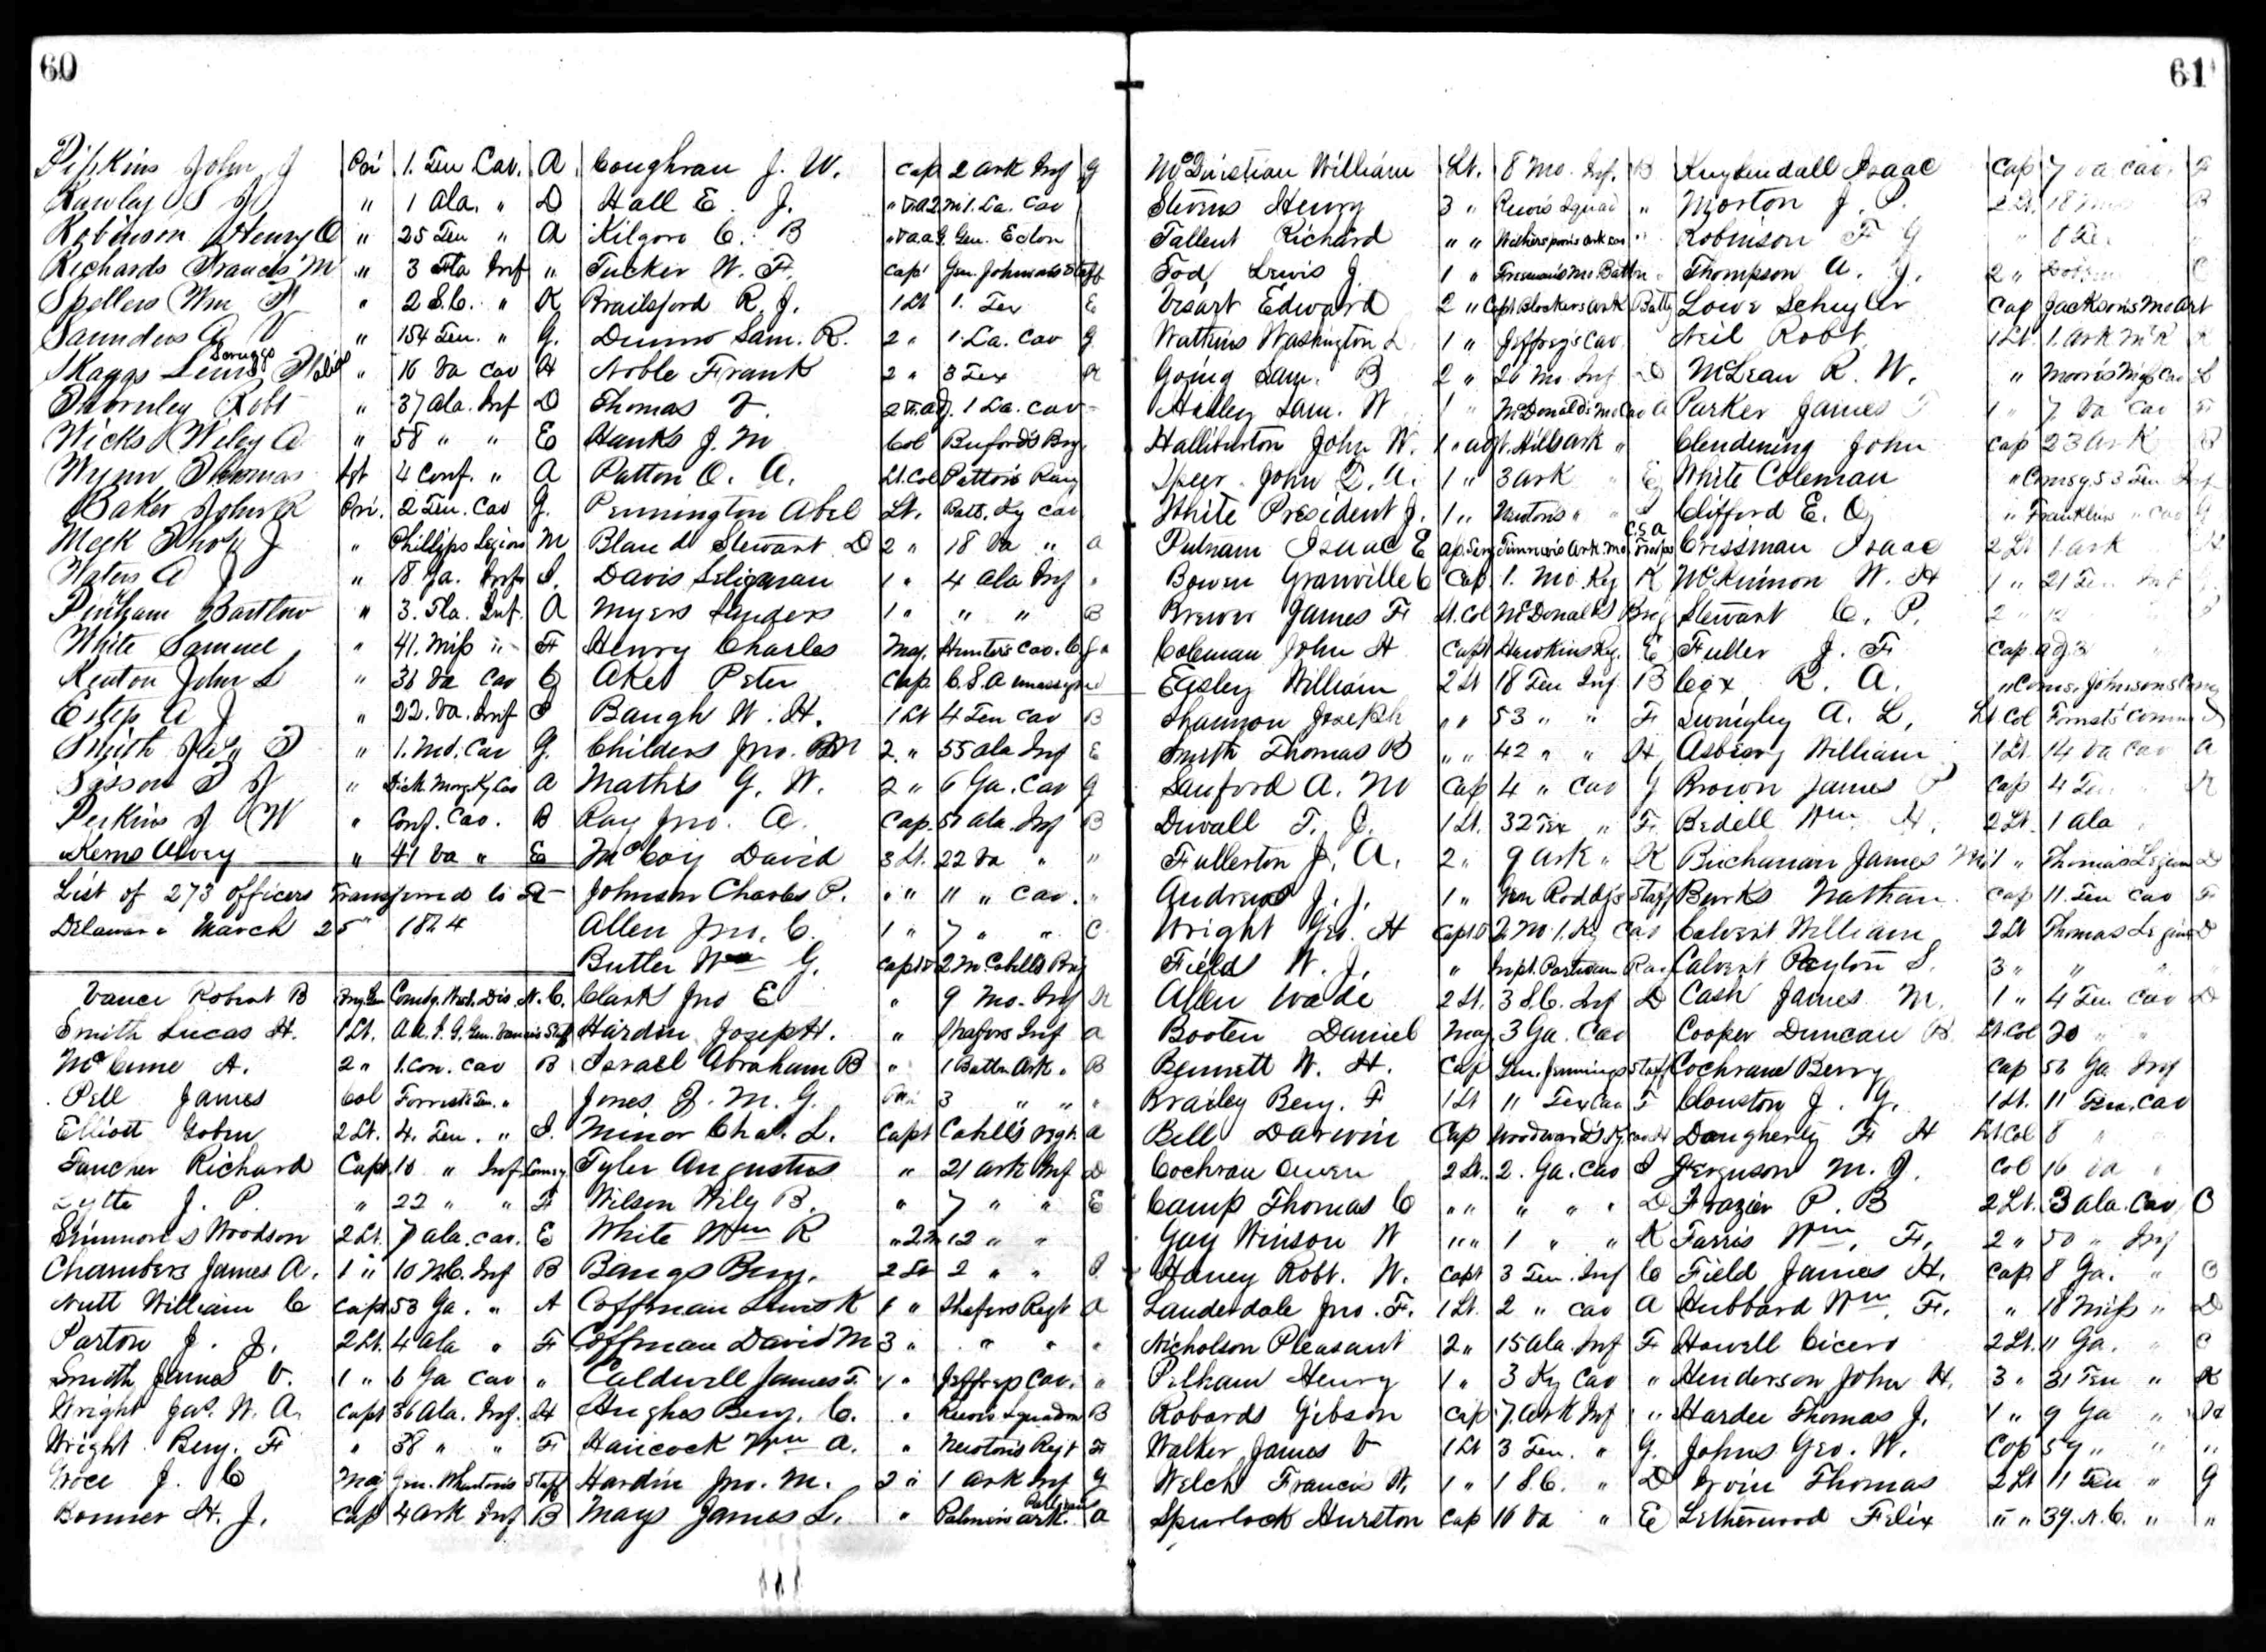 60
Pipkins John J Pri 1. Ten Cav. A
Hawley S " 1 Ala. " D
Robinson Henry O " 25 Ten " A
Richards Francis M " 3 Fla Inf "
Spellers Wm " 2 S.C. " K
Saunders A V " 154 Ten. " G.
Skaggs Lewis Scruggs " 16 Va Cav H
Thornley Robt " 37 Ala. Inf D
Wicks Wiley A " 58 " " E
Wynn Thomas 4 Conf. " A
Baker John R Pri. 2 Ten. Cav G.
Meek J " Phillips Legion M
Waters A J " 18 Ga. Inf I.
Pinkham Bartlow " 3. Fla. Inf. A
White Samuel " 41. Miss " F
Kenton John S " 36 Va Cav G
Estep A J " 22. Va. Inf I
Smith " 1. Md. Cav G.
Sisson " Dick Morg. Ky Cav A
Perkins J W " Conf. Cav. B
Kerns Alvey " 41 Va " E
List of 273 officers Transferred to Ft
Delaware March 25" 1864
Vance Robert B Brig Gen Comdg. West. Dis. N.C.
Smith Lucas H. 1 Lt. A.A.I.G. Gen. Vance's Staff
McCune A. 2 " 1. Con. Cav B
Pell James Col Forrest's Ten. "
Elliott Gobin 2 Lt. 4. Ten. " I.
Fancher Richard Capt. 16 " Inf Comsy
Lytte J. P. " 22 " " F
Simmons Woodson 2 Lt. 7 Ala. Cav. E
Chambers James A. 1 " 10 N.C. Inf B
Nutt William C Capt 53 Ga. " A
Parton J. J. 2 Lt. 4 Ala " F
Smith James V. 1 " 6 Ga Cav "
Wright Jas. W. A. Capt 36 Ala. Inf. H
Wright Benj. F " 38 " " F
Groce J. C Maj Gen. Wharton's Staff
Bonner H. J. Cap 4 Ark Inf B
Coughran J. W. Cap 2 Ark Inf G
Hall E. J. 1. La. Cav
Kilgore C. B Gen. Ector
Tucker W. F. Cap Gen. Johnson's Staff
Brailsford R. J. 1 Lt 1. Tex E
Dunn Sam. R. 2 " 1. La. Cav G
Noble Frank 2 " 3 Tex K
Thomas J. 1 La. Cav
Hanks J. M Col Buford's Brig
Patton O. A. Lt. Col Patton's Reg
Pennington Abel Lt. Batt. Ky Cav
Bland Stewart D 2 " 18 Va " A
Davis Seligman 1 " 4 Ala Inf "
Myers Landers 1 " " " B
Henry Charles Maj. Hunter's Cav.
Aker Peter Cap C.S.A unassigned
Baugh W. H. 1 Lt 4 Ten Cav B
Childers Jno. M 2. " 55 Ala Inf E
Mathis G. W. 2 " 6 Ga. Cav G
Ray Jno. A. Cap. 51 Ala. Inf B
McCoy David 3 Lt. 22 Va " "
Johnson Charles P. " " 11 " Cav. "
Allen Jno. C. 1 " 7 " " C
Butler Wm G. Capt 2 M Cabell's Brig
Clark Jno E " 9 Mo. Inf K
Hardin Joseph H. " Shafers Inf A
Israel Abraham B " 1 Battn Ark. " B
Jones J. M. G. 3 " " "
Minor Chas. L. Capt Cabell's A
Tyler Augustus " 21 Ark Inf D
Wilson Wily B. " 7 " " E
White Wm R 12 " "
Bangs Benj. 2 Lt 2 " " I
Coffman Lewis K 1 " Shafers Regt A
Coffman David M 3 " " " "
Caldwell James T. 1 " Jeffreys Cav. "
Hughes Benj. C. " Reeves Squadron B
Hancock Wm A. " Newton's Regt F
Hardin Jno. M. 2 " 1 Ark Inf G
Mays James L. " Ark. A
61
McQuistian William Lt. 8 Mo. Inf. B
Stevens Henry 3 " Reeves Squad "
Tallent Richard " " Witherspoon's Ark Cav "
Tod Lewis J 1 " Freeman's Mo Battn "
Visart Edward 2 " Capt Blockers Ark Batty
Watkins Washington L 1 " Jeffreys Cav
Going Sam. B 2 " 26 Mo. Inf D
Hadley Sam. W 1 " McDonald's Mo Cav A
Halliburton John W. 1 " Adjt. Hills Ark "
Speer John 1 " 3 Ark " E
White President J. 1 " Newtons "
Putnam Isaac E C.S.A
Bowen Granville C Cap 1. Mo. Reg K
Brewer James F Lt. Col McDonalds Brig
Coleman John H Capt Hawkins Reg. E
Easley William 2 Lt 18 Ten Inf B
Shannon Joseph " " 53 " " F
Smith Thomas B " " 42 " " H
Sanford A. M Cap 4 " Cav G
Duvall T. J. 1 Lt. 32 Tex " F.
Fullerton J. A. 2 " 9 Ark " K
Andrews J. J. 1 " Gen Roddy's Staff
Wright Geo. H
Fields W. J. "
Allen Wade 2 Lt. 3 S.C. Inf D
Booten Daniel Maj. 3 Ga. Cav
Bennett W. H. Cap Gen. Jennings Staff
Brailey Benj. F 1 Lt 11 Tex Cav F
Bell Darwin Cap Woodward's Ky Cav H
Cochran Owen 2 Lt. 2. Ga. Cav I
Camp Thomas C " " " " " D
Gay Winson W " " 1 " " K
Haney Robt. W. Capt 3 Ten. Inf C
Lauderdale Jno. F. 1 Lt. 2 " Cav A
Nicholson Pleasant 2 " 15 Ala. Inf F
Pelham Henry 1 " 3 Ky Cav "
Robards Gibson Cap 7. Ark Inf "
Walker James V 1 Lt 3 Ten. " G.
Welch Francis W. 1 " 1 S.C. " D
Spurlock Hurston Cap 16 Va " E
Kuykendall Isaac Cap 7 Va Cav. F
Morton J. P. 2 Lt. 18 B
Robinson F G " 8 Te
Thompson A. J. 2 " C
Lowe Schuyler Cap Jackson's Mo Art
Neil Robt 1 Lt. 1. Ark
McLean R. W. " Moores Cav
Parker James 1 " 7 Va Cav F
Clendening John Cap 23 Ark B
White Coleman " Comsy 53 Ten Inf
Clifford E. O. " Franklin's " Cav G
Crissman Isaac 2 Lt 1 Ark H
McKinnon W. H 1 " 21 Ten Inf
Stewart C. P. 2 "
Fuller J. F Cap.
Cox R. A. " Coms. Johnson's
Swingley A. L. Lt Col Forrest's
Asberry William 1 Lt. 14 Va Cav A
Brown James P Cap 4 Ten " K
Bedell Wm H. 2 Lt. 1 Ala
Buchanan James " Thomas Legion D
Burks Nathan Cap 11. Ten Cav F
Calvert William 2 Lt Thomas Legion D
Calvert Peyton S. 3 " " "
Cash James M. 1 " 4 Ten Cav D
Cooper Duncan B. Lt. Col 20 " "
Cochrane Berry Cap 56 Ga Inf
Clouston J. G. 1 Lt. 11 Ten. Cav
Daugherty F H Lt Col 8 " "
Ferguson M. J. Col 16 Va "
Frazier P. B 2 Lt. 3 Ala. Cav C
Farris Wm. F. 2 " 50 " Inf
Field James H. Cap 8 Ga. " C
Hubbard Wm. F. " 18 Miss " D
Howell Cicero 2 Lt. 11 Ga. " C
Henderson John H. 3 " 31 Ten " K
Hardee Thomas J. 1 " 9 Ga " H
Johns Geo. W. Cap 59 " " "
Irvin Thomas 2 Lt 11 Ten " G
Letherwood Felix " " 39. N.C. " "